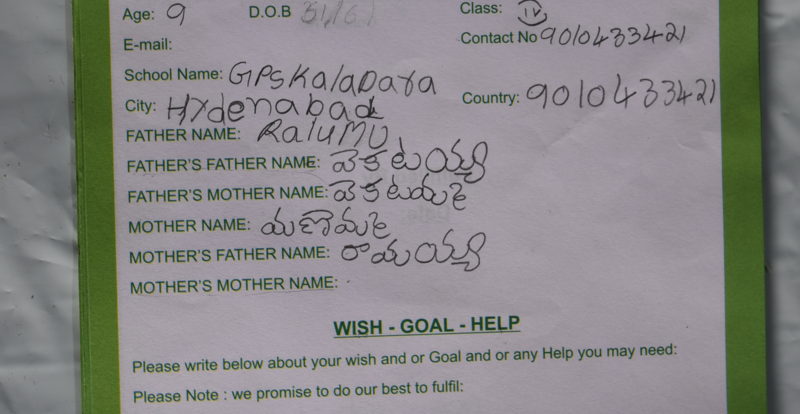 Age: 9 D.O.B Class: IV
E-mail:
Contact No 9010433421
School Name: GPSKalaDara
City: Hydenabad Country: 9010433421
FATHER NAME: RaluMU
FATHER'S FATHER NAME: వెకటయ్య
FATHER'S MOTHER NAME: వెకటమ
MOTHER NAME:
MOTHER'S FATHER NAME: రామయ్య
MOTHER'S MOTHER NAME:
WISH - GOAL - HELP
Please write below about your wish and or Goal and or any Help you may need:
Please Note : we promise to do our best to fulfil: